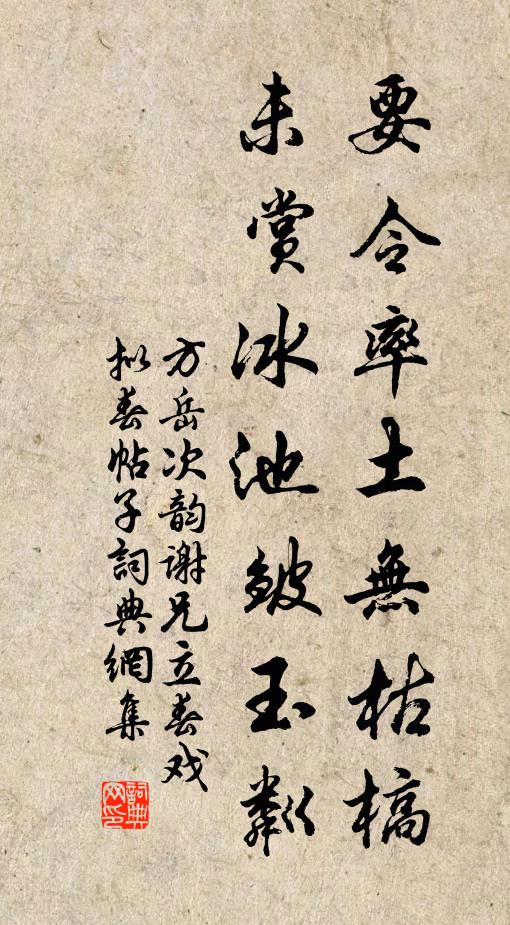 要令率土無枯槁
未賞冰池皴玉粼
方岳次韵谢兄立春戏
拟春帖子詞典網集
詞典网印